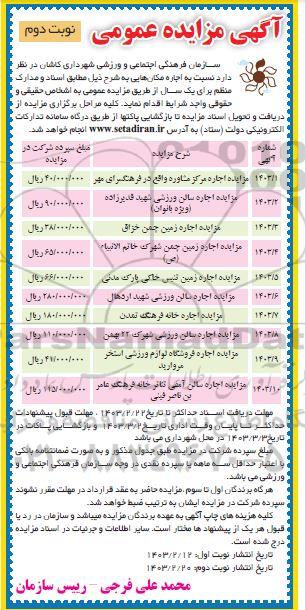 آگهی مزایده عمومی
نوبت دوم
سازمان فرهنگی اجتماعی و ورزشی شهرداری کاشان در نظر
دارد نسبت به اجاره مکان‌هایی به شرح ذیل مطابق اسناد و مدارک
منظم برای یک سال از طریق مزایده عمومی به اشخاص حقیقی و
حقوقی واجد شرایط اقدام نماید. کلیه مراحل برگزاری مزایده از
دریافت و تحویل اسناد مزایده تا بازگشایی پاکتها از طریق درگاه سامانه تدارکات
الکترونیکی دولت (ستاد) به آدرس www.setadiran.ir انجام خواهد شد.
شماره آگهی شرح مزایده مبلغ سپرده شرکت در مزایده
۱۴۰۳/۱ مزایده اجاره مرکز مشاوره واقع در فرهنگسرای مهر ۴۰/۰۰۰/۰۰۰ ریال
۱۴۰۳/۲ مزایده اجاره سالن ورزشی شهید قدیرزاده (ویژه بانوان) ۹۰/۰۰۰/۰۰۰ ریال
۱۴۰۳/۳ مزایده اجاره زمین چمن خزاق ۳۸/۰۰۰/۰۰۰ ریال
۱۴۰۳/۴ مزایده اجاره زمین چمن شهرک خاتم الانبیاء (ص) ۶۵/۰۰۰/۰۰۰ ریال
۱۴۰۳/۵ مزایده اجاره زمین تنیس خاکی پارک مدنی ۶۶/۰۰۰/۰۰۰ ریال
۱۴۰۳/۶ مزایده اجاره سالن ورزشی شهید اردهال ۲۸۰/۰۰۰/۰۰۰ ریال
۱۴۰۳/۷ مزایده اجاره خانه فرهنگ تمدن ۱۸۰/۰۰۰/۰۰۰ ریال
۱۴۰۳/۸ مزایده اجاره سالن ورزشی شهرک ۲۲ بهمن ۱۱۰/۰۰۰/۰۰۰ ریال
۱۴۰۳/۹ مزایده اجاره فروشگاه لوازم ورزشی استخر مروارید ۴۱/۰۰۰/۰۰۰ ریال
۱۴۰۳/۱۰ مزایده اجاره سالن آمفی تئاتر خانه فرهنگ عامر بن ناصر فینی ۱۱۵/۰۰۰/۰۰۰ ریال
مهلت دریافت اسناد حداکثر تا تاریخ ۱۴۰۳/۲/۲۲ ، مهلت قبول پیشنهادات
حداکثر تا پایان وقت اداری تاریخ ۱۴۰۳/۳/۲ و بازگشایی پاکات در
تاریخ ۱۴۰۳/۳/۳ در محل شهرداری می باشد
مبلغ سپرده شرکت در مزایده طبق جدول مذکور و به صورت ضمانتنامه بانکی
با اعتبار حداقل سه ماهه یا سپرده نقدی در وجه سازمان فرهنگی اجتماعی و
ورزشی می باشد.
هرگاه برندگان اول تا سوم ،مزایده حاضر به عقد قرارداد در مهلت مقرر نشوند
سپرده شرکت در مزایده ایشان به ترتیب ضبط خواهد شد.
کلیه هزینه های چاپ آگهی به عهده برندگان مزایده میباشد و سازمان در رد یا
قبول هر یک از پیشنهاد ها مختار است. سایر اطلاعات و جزئیات در اسناد مزایده
درج شده است.
تاریخ انتشار نوبت اول: ۱۴۰۳/۲/۱۲
تاریخ انتشار نوبت دوم: ۱۴۰۳/۲/۲۰
محمد علی فرجی – رییس سازمان